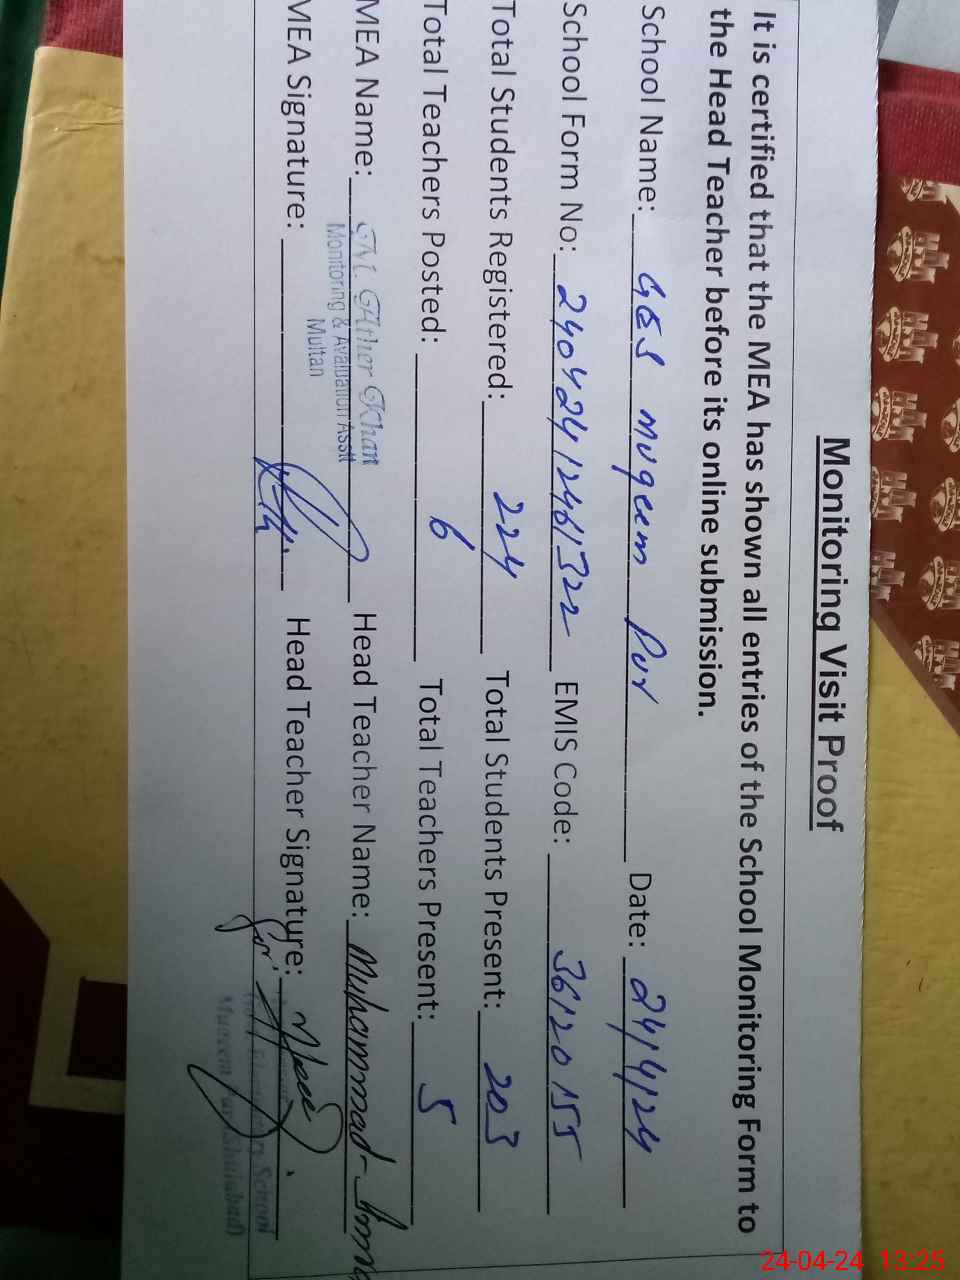 Monitoring Visit Proof
It is certified that the MEA has shown all entries of the School Monitoring Form to
the Head Teacher before its online submission.
School Name: GES muqeem Pur Date: 24/4/24
School Form No: 24042412461322 EMIS Code: 36120155
Total Students Registered: 224 Total Students Present: 203
Total Teachers Posted: 6 Total Teachers Present: 5
MEA Name: Head Teacher Name: Muhammad
M. Ather Khan
Monitoring & Avaluation Asstt
Multan
MEA Signature: Head Teacher Signature:
for
School
24-04-24 13:25